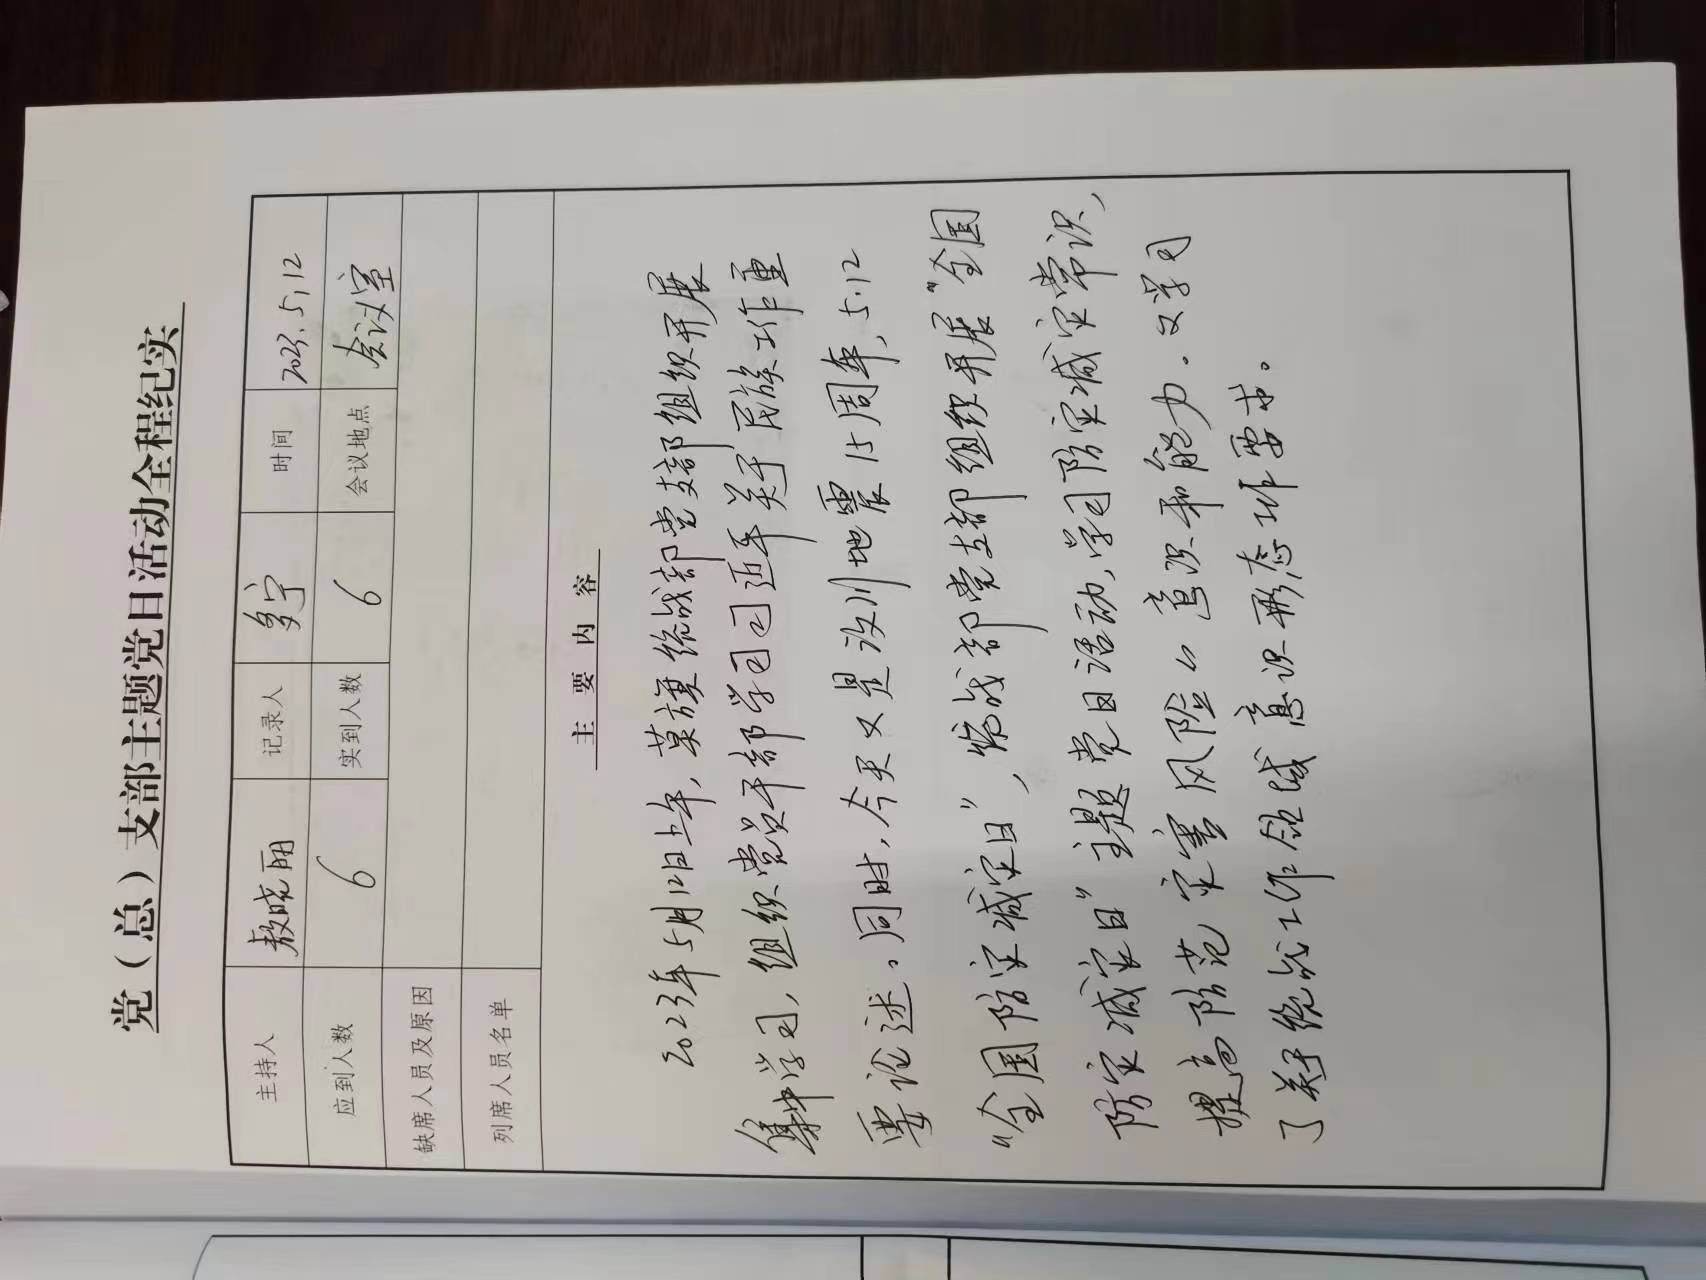 党（总）支部主题党日活动全程纪实
主持人 敖晓丽 记录人 多宁 时间 2023.5.12
应到人数 6 实到人数 6 会议地点 会议室
缺席人员及原因
列席人员名单
主要内容
2023年5月12日上午，莫旗统战部党支部组织开展
集中学习，组织党员干部学习近年关于民族工作重
要论述。同时，今天又是汶川地震15周年，5.12
“全国防灾减灾日”，统战部党支部组织开展“全国
防灾减灾日”主题党日活动，学习防灾减灾常识，
提高防范灾害风险的意识和能力。又学习
了关于统战工作领域意识形态工作要求。